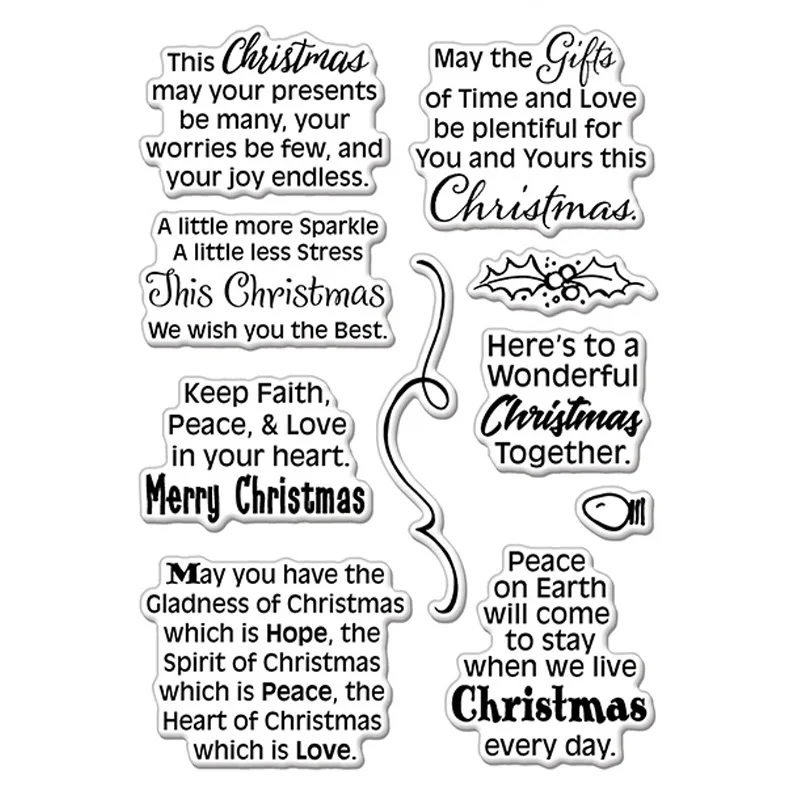 This Christmas
may your presents
be many, your
worries be few, and
your joy endless.
May the Gifts
of Time and Love
be plentiful for
You and Yours this
Christmas.
A little more Sparkle
A little less Stress
This Christmas
We wish you the Best.
Here's to a
Wonderful
Christmas
Together.
Keep Faith,
Peace, & Love
in your heart.
Merry Christmas
May you have the
Gladness of Christmas
which is Hope, the
Spirit of Christmas
which is Peace, the
Heart of Christmas
which is Love.
Peace
on Earth
will come
to stay
when we live
Christmas
every day.